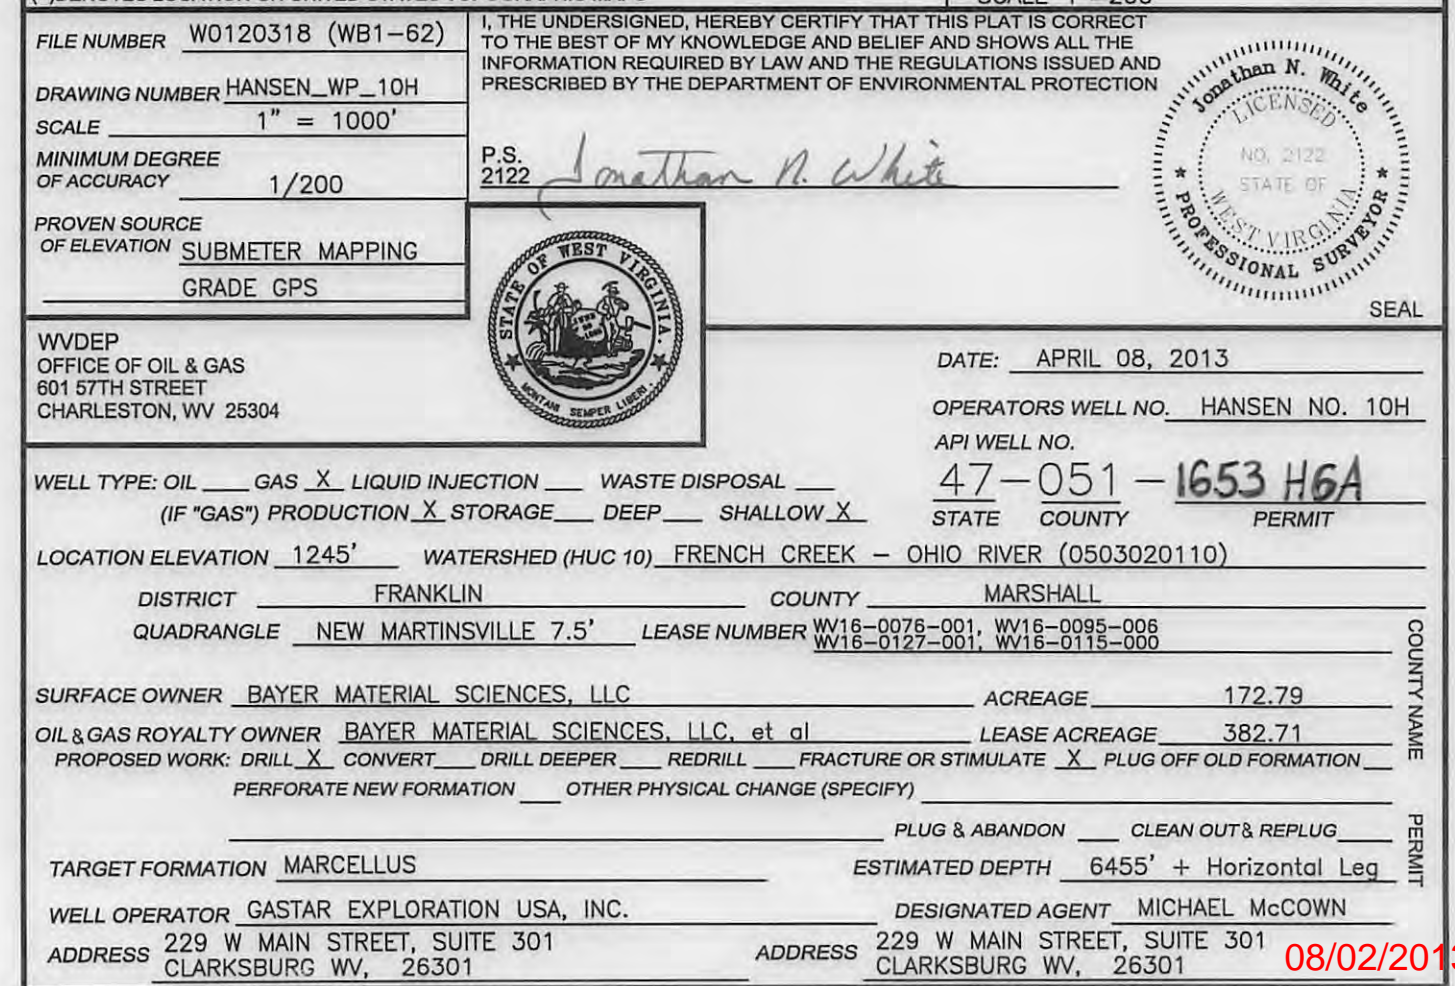 FILE NUMBER W0120318 (WB1-62)
DRAWING NUMBER HANSEN_WP_10H
SCALE 1" = 1000'
MINIMUM DEGREE
OF ACCURACY 1/200
PROVEN SOURCE
OF ELEVATION SUBMETER MAPPING
GRADE GPS
I, THE UNDERSIGNED, HEREBY CERTIFY THAT THIS PLAT IS CORRECT
TO THE BEST OF MY KNOWLEDGE AND BELIEF AND SHOWS ALL THE
INFORMATION REQUIRED BY LAW AND THE REGULATIONS ISSUED AND
PRESCRIBED BY THE DEPARTMENT OF ENVIRONMENTAL PROTECTION
P.S.
2122 Jonathan N. White
Jonathan N. White
LICENSED
NO. 2122
STATE OF
WEST VIRGINIA
★ PROFESSIONAL SURVEYOR ★
SEAL
STATE OF WEST VIRGINIA.
MONTANI SEMPER LIBERI.
WVDEP
OFFICE OF OIL & GAS
601 57TH STREET
CHARLESTON, WV 25304
DATE: APRIL 08, 2013
OPERATORS WELL NO. HANSEN NO. 10H
API WELL NO.
47-051-1653 H6A
STATE COUNTY PERMIT
WELL TYPE: OIL ___ GAS X LIQUID INJECTION ___ WASTE DISPOSAL ___
(IF "GAS") PRODUCTION X STORAGE ___ DEEP ___ SHALLOW X
LOCATION ELEVATION 1245' WATERSHED (HUC 10) FRENCH CREEK - OHIO RIVER (0503020110)
DISTRICT FRANKLIN COUNTY MARSHALL
QUADRANGLE NEW MARTINSVILLE 7.5' LEASE NUMBER WV16-0076-001, WV16-0095-006
WV16-0127-001, WV16-0115-000
SURFACE OWNER BAYER MATERIAL SCIENCES, LLC ACREAGE 172.79
OIL & GAS ROYALTY OWNER BAYER MATERIAL SCIENCES, LLC, et al LEASE ACREAGE 382.71
PROPOSED WORK: DRILL X CONVERT ___ DRILL DEEPER ___ REDRILL ___ FRACTURE OR STIMULATE X PLUG OFF OLD FORMATION ___
PERFORATE NEW FORMATION ___ OTHER PHYSICAL CHANGE (SPECIFY) ___
PLUG & ABANDON ___ CLEAN OUT & REPLUG ___
TARGET FORMATION MARCELLUS ESTIMATED DEPTH 6455' + Horizontal Leg
WELL OPERATOR GASTAR EXPLORATION USA, INC. DESIGNATED AGENT MICHAEL McCOWN
ADDRESS 229 W MAIN STREET, SUITE 301 ADDRESS 229 W MAIN STREET, SUITE 301
CLARKSBURG WV, 26301 CLARKSBURG WV, 26301
COUNTY NAME
PERMIT
08/02/2013